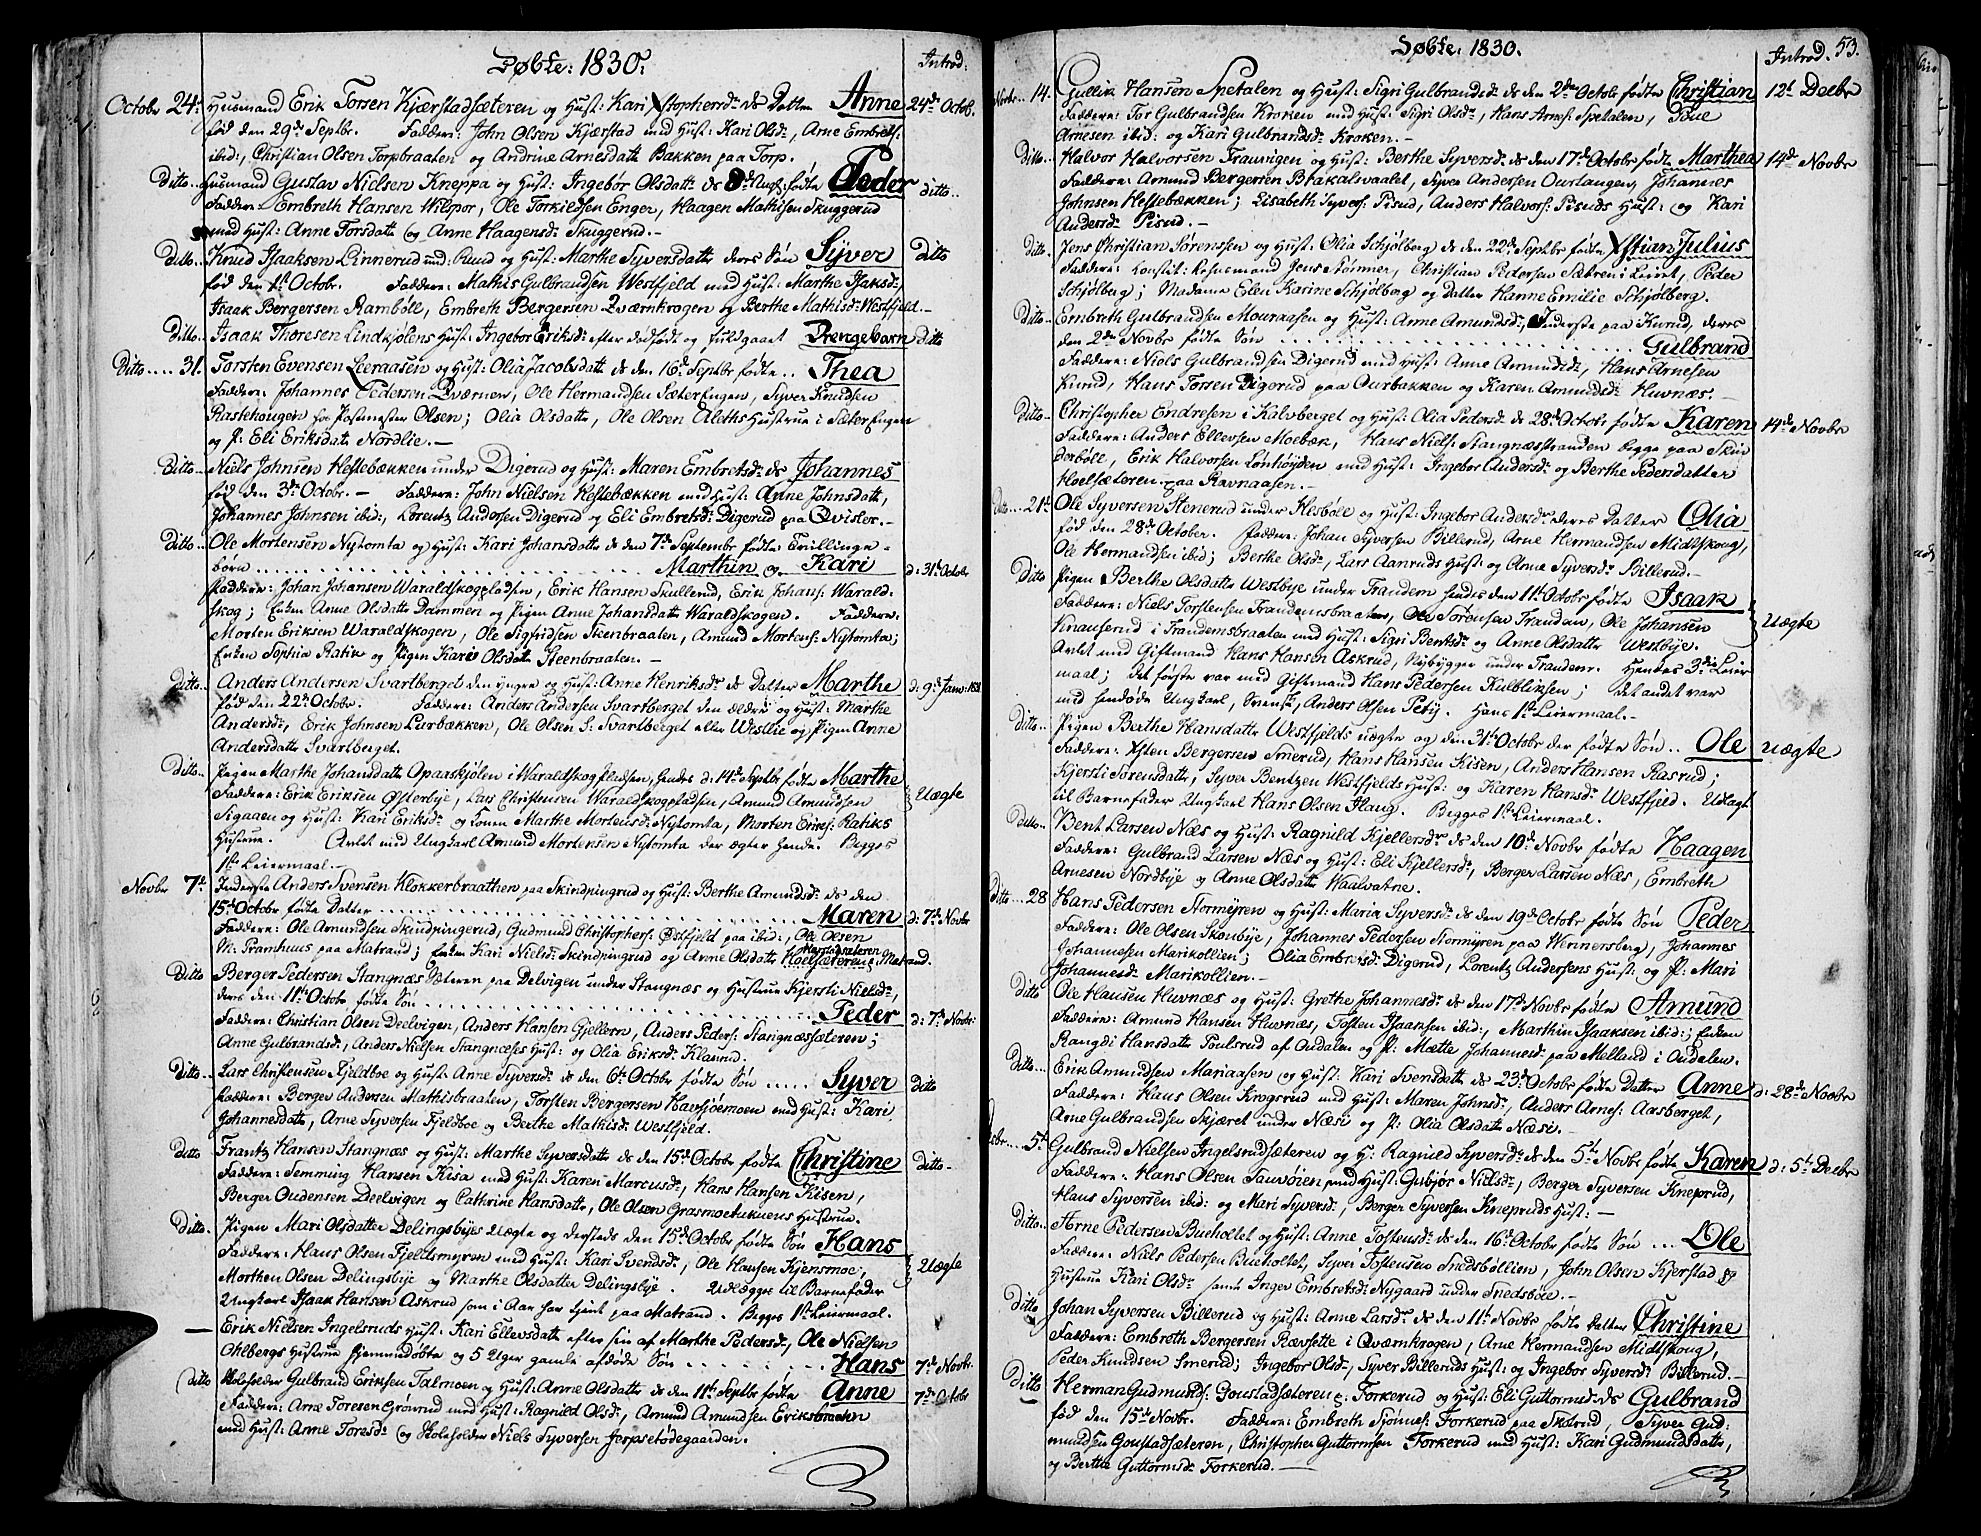 Døbte: 1830.
Introd:
Octobr 24. Husmand Erik Torsen Kjærstadsæteren og Hust: Kari Xstophersdr ds Datter Anne 24de Octob.
fød den 29de Septbr. Faddere: John Olsen Kjærstad med Hust: Kari Olsdr, Arne Embrets:
ibid:, Christian Olsen Torpbraaten og Andrine Arnesdatt Bakken paa Torp.
Ditto.. Husmand Gustav Nielsen Kneppa og Hust: Ingebør Olsdattr ds 8de Augs: fødte Peder ditto..
Faddere: Embreth Hansen Wilpor, Ole Torkildsen Enger, Haagen Mathisen Skuggerud
med Hust: Anne Torsdattr og Anne Haagensdr Skuggerud.-
Ditto.. Knud Isaksen Linnerud und: Rund og Hust: Marthe Syversdattr deres Søn Syver Ditto
fød den 1st Octobr. Faddere: Mathis Gulbrandsen Westfjeld med Hust: Marthe Isaksdr,
Isaak Bergersen Rambøll, Embreth Bergersen Qværnkrogen og Berthe Mathisdr Westfjeld.-
Ditto.. Isaak Thoresen Lindkjølens Hust: Ingebor Eriksdr efter dødfødt og fuldgaaet Drengebarn Ditto
Ditto.... 31. Torsten Evensen Leeraasen og Hust: Olia Jacobsdattr ds den 16de Septbr fødte .. Thea
Faddere: Johannes Pedersen Qværnen, Ole Hermandsen SæterEngen, Syver Knudsen
Rastehougen for Postmester Olsen; Olia Olsdattr, Ole Olsen Aleths Hustrue i SæterEngen
og P: Eli Eriksdattr Nordlie.-
Ditto.. Niels Johnsen Hestebækken under Digerud og Hust: Maren Embretsdr ds Johannes
fød den 3de Octobr.- Faddere: John Nielsen Hestebækken med Hust: Anne Johnsdattr,
Johannes Johnsen ibid:, Lorentz Andersen Digerud og Eli Embretsdr Digerud paa Qvisler.-
Ditto.. Ole Mortensen Nytomta og Hust: Kari Johansdattr ds den 7de Septembr fødte Tvillinge-
børn ........ Marthin og Kari d: 31te Octobr
Faddere: Johan Johansen Waraldskogpladsen, Erik Hansen Skullerud, Erik Johans: Warald-
skog; Enken Anne Olsdattr Dammen og Pigen Anne Johansdattr Waraldskogen. Faddere:
Morten Eriksen Waraldskogen, Ole Sigfridsen Steenbraaten, Amund Mortens: Nytomta;
Enken Sophia Ratik og Pigen Kari Olsdattr Steenbraaten.-
Ditto.. Anders Andersen Svartberget den yngre og Hust: Anne Henriksdr ds Datter Marthe d: 9de Janv: 1831
fød den 22de Octobr. Faddere: Anders Andersen Svartberget den ældre og Hust: Marthe
Andersdr, Erik Johnsen Lurbakken, Ole Olsen S: Svartberget eller Westlie og Pigen Anne
Andersdattr Svartberget.
Ditto.. Pigen Marthe Johansdattr Opaaskjølen i Waraldskogpladsen, hendes d: 14de Septbr fødte Marthe
Faddere: Erik Eriksen Østerbye, Lars Christensen Waraldskogpladsen, Amund Amundsen Uægte
Sigaaen og Hust: Kari Eriksdr og Konen Marthe Mortensdr Nytomta, Morten Eriks: Ratiks
Hustrue. Avlet med Ungkarl Amund Mortensen Nytomta der ægter hende. Begges
1ste Leiermaal.-
Novbr 7de Inderste Anders Svensen Klokkerbraathen paa Skindpingrud og Hust: Berthe Amundsdr ds den
15de Octobr fødte Datter ........ Maren d: 7de Novbr
Faddere: Ole Amundsen Skindpingerud, Gudmund Christophers: Østfjeld paa ibid:, Ole Olsen
M: Pramhuus paa Matrand; Enken Kari Nielsdr Skindpingrud og Anne Olsdattr Hoelsæteren, Matrand.
Ditto Berger Pedersen Stangnæssæteren paa Delvigen under Stangnæs og Hustrue Kjersti Nielsdr,
deres den 11te Octobr fødte Søn ........ Peder d: 7de Novbr:
Faddere: Christian Olsen Deelvigen, Anders Hansen Gjellern, Anders Peders: Stangnæssæteren;
Anne Gulbrandsdr, Anders Nielsen Stangnæses Hust: og Olia Eriksdr Klanna.
Ditto.. Lars Christensen Fjeldboe og Hust: Anne Syversdr ds den 6te Octobr fødte Søn ..... Syver Ditto
Faddere: Berger Andersen Mathisbraaten, Torsten Bergersen Havsjøemoen med Hust: Kari
Johannesdattr, Arne Syversen Fjeldboe og Berthe Mathisdr Westfjeld.
Ditto Frantz Hansen Stangnæs og Hust: Marthe Syversdattr ds den 15de Octobr fødte Christine ditto-
Faddere: Femming Hansen Kisa med Hust: Karen Marcusdr, Hans Hansen Kisen,
Berger Oudensen Deelvigen og Cathrine Hansdattr, Ole Olsen Grasmoetukuens Hustrue.
Ditto. Pigen Mari Olsdatter Delingsbyes Uægte og dersteds den 15de Octobr fødte Søn Hans
Faddere: Hans Olsen Fjeldsmyren med Hust: Kari Svendsdr, Ole Hansen Kjensmoe, Uægte
Morthen Olsen Delingsbye og Marthe Olsdatter Delingsbye. Udlægges til Barnefader
Ungkarl Isaak Hansen Askrud som i Aar har tjent paa Matrand. Begges 1ste Leiermaal.
— Erik Nielsen Ingelsruds Hust: Kari Ellevsdattr efter sin af Marthe Pedersdr, Ole Nielsen
Ahlbergs Hustrue hjemmedøbte og 5 Uger gamle afdøde Søn ........ Hans 7de Novbr.
Ditto Skoleholder Gulbrand Eriksen Talmoen og Hust: Anne Olsdattr ds den 11te Septbr fødte Anne 7de Octobr
Faddere: Arne Toresen Grøvrud med Hust: Ragnild Olsdr, Amund Amundsen Eriksbraaten
med Hust: Anne Toresdr og Skoleholder Niels Syversen Jerpsetødegaarden.
Døbte: 1830.
Introd. 53.
Novbr.. 14. Gullik Hansen Spetalen og Hust: Sigri Gulbrandsdr ds den 2den Octobr fødte Christian 12te Decbr
Faddere: Tor Gulbrandsen Kroken med Hust: Sigri Olsdr, Hans Arnes: Spetalen, Tove
Arnesen ibid: og Kari Gulbrandsdr Kroken.-
Ditto.. Halvor Halvorsen Frauvigen og Hust: Berthe Syversdr ds den 17de Octobr fødte Marthea 14de Novbr
Faddere: Amund Bergersen Brakalsvaalet, Syver Andersen Ourtangen, Johannes
Johnsen Hestebækken; Lisabeth Syvers: Pisud, Anders Halvors: Pisuds Hust: og Kari
Andersdr Pisud.-
Ditto. Jens Christian Sørenssen og Hust: Olia Schjølberg ds den 22de Septbr fødte Xstian Julius
Faddere: Constit: Lehnsmand Jens Stømner, Christian Pedersen Sætren: Leint, Peder
Schjølberg; Madame Elen Karine Schjølberg og Datter Hanne Emilie Schjølberg.
Ditto.. Embreth Gulbrandsen Mouraasen og Hust: Anne Amundsdr, Inderste paa Kurud, deres
den 2den Novbr fødte Søn ........ Gulbrand
Faddere: Niels Gulbrandsen Digerud med Hust: Anne Amundsdr, Hans Arnesen
Kurud, Hans Torsen Digerud paa Ourbakken og Karen Amundsdr Huvnæs.-
Ditto.. Christopher Endresen i Kalvberget og Hust: Olia Pedersdr ds 28de Octobr fødte Karen 14de Novbr
Faddere: Anders Ellevsen Moebæk, Hans Niels: Stangnæsstranden begge paa Skin
derbøle, Erik Halvorsen Lønhøyden med Hust: Ingebor Andersdr og Berthe Pedersdatter
Hoelsæteren paa Ravnaasen.-
Ditto... 21te Ole Syversen Stenerud under Hesbøle og Hust: Ingebor Andersdr deres Datter Olia
fød den 28de October. Faddere: Johan Syversen Billerud, Arne Hermandsen Midtskoug,
Ole Hermandsen ibid; Berthe Olsdr, Lars Aanruds Hust: og Anne Syversdr Billerud.-
Ditto Pigen Berthe Olsdattr Westbye under Frauden hendes den 11te Octobr fødte Isaak
Faddere: Niels Torstensen Fraudensbraaten, Ole Sørensen Frauden, Ole Johansen
Knauserud i Fraudensbraaten med Hust: Sigri Bentsdr og Anne Olsdattr Westbye. Uægte
Avlet med Giftmand Hans Hansen Askrud, Nybygger under Frauden. Hendes 3die Leier-
maal; det første var med Giftmand Hans Pedersen Kulbliksen; det andet var
med hendøde Ungkarl, Svensk, Anders Olsen Peby. Hans 1ste Leiermaal.-
Ditto.. Pigen Berthe Hansdattr Westfjelds uægte og den 31te Octobr der fødte Søn .. Ole uægte
Faddere: Asten Bergersen Smerud, Hans Hansen Kisen, Anders Hansen Rasrud;
Kjersti Sørensdattr, Syver Bentzen Westfjelds Hust: og Karen Hansdr Westfjeld. Udlagt
til Barnefader Ungkarl Hans Olsen Haug. Begges 1ste Leiermaal.
Ditto.. Bent Larsen Næs og Hust: Ragnild Kjellersdr ds den 10de Novbr fødte Haagen
Faddere: Gulbrand Larsen Næs og Hust: Eli Kjellersdr, Berger Larsen Næs, Embreth
Arnesen Nordbye og Anne Olsdattr Waalvatne.
Ditto... 28 Hans Pedersen Stormyren og Hust: Maria Syversdr ds den 19de Octobr fødte Søn Peder
Faddere: Ole Olsen Skoubye, Johannes Pedersen Stormyren paa Hennersberg, Johannes
Johannesen Marikollien; Olia Embretsdr Digerud, Lorentz Andersens Hust: og P: Mari
Johannesdr Marikollien.-
Ditto Ole Hansen Huvnæs og Hust: Grethe Johannesdr ds den 17de Novbr fødte Amund
Faddere: Amund Hansen Huvnæs, Tosten Isaaksen ibid:, Marthin Isaaksen ibid:; Enken
Rangdi Hansdattr Poulsrud af Oudalen og P: Mætte Johannesdr paa Melland i Oudalen.
Ditto.. Erik Amundsen Mariaasen og Hust: Kari Svensdattr ds 23de Octobr fødte Datter Anne d: 28de Novbr
Faddere: Hans Olsen Krogsrud med Hust: Maren Johnsdr, Anders Arnes: Aasberget,
Arne Gulbrandsen Skjæret under Næsi og P: Olia Olsdattr Næsi.-
5te Gulbrand Nielsen Ingelsrudsæteren og H: Ragnild Syversdr ds den 5te Novbr fødte Karen d: 5te Decbr
Faddere: Hans Olsen Sauvøien med Hust: Gubjør Nielsdr, Berger Syversen Kneprud,
Hans Syversen ibid: og Mari Syversdr, Berger Syversen Knepruds Hust:-
Ditto.. Arne Pedersen Buholtet og Hust: Anne Tostensdr ds den 16de Octobr fødte Søn ... Ole
Faddere: Niels Pedersen Bueholtet, Syver Tostensen Snedsbøllien, John Olsen Kjerstad og
Hustrue Kari Olsdr samt Inger Embretsdr Nygaard under Snedsbøle.-
Ditto Johan Syversen Billerud og Hust: Anne Larsdr ds den 11te Novbr fødte Datter Christine
Faddere: Embreth Bergersen Rævsette i Qværnkrogen, Arne Hermandsen Midtskoug,
Peder Knudsen Smerud; Ingebor Olsdr, Syver Billeruds Hust: og Ingebor Syversdr Billerud.-
Ditto Herman Gudmunds: Goustadsæteren p: Forkerud og Hust: Eli Guttormsdr ds Gulbrand
fød den 15de Novbr. Faddere: Embreth Simens: Forkerud paa Skotrud, Syver Gud-
mundsen Goustadsæteren, Christopher Guttormsen Forkerud med Hust: Kari Gudmundsdattr,
og Berthe Guttormsdr Forkerud.-